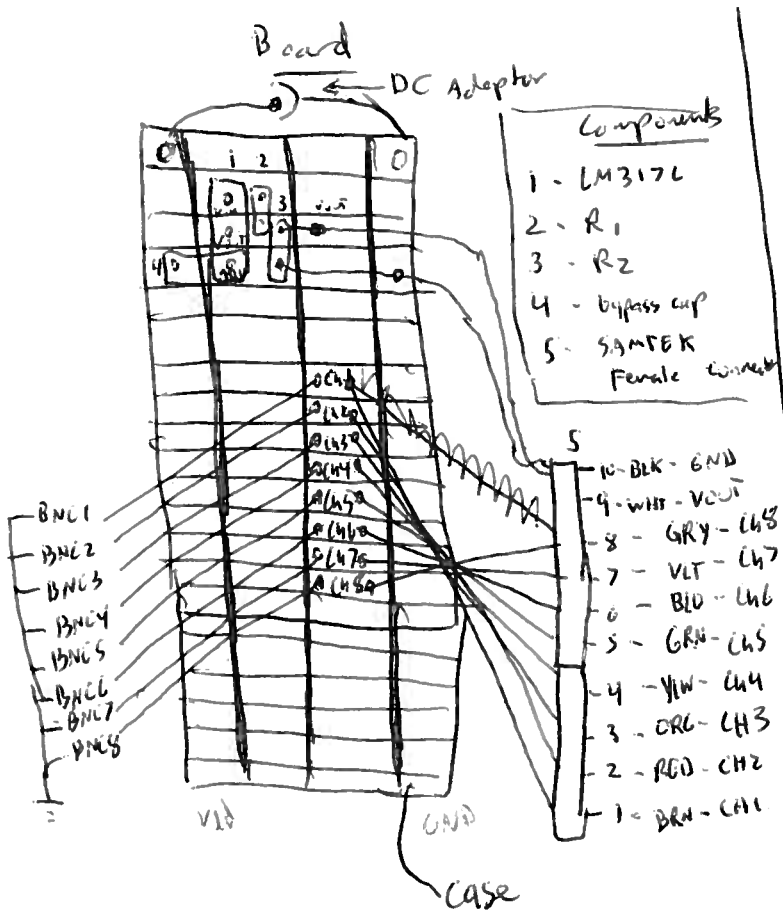 Board
DC Adaptor
Components
1 - LM317L
2 - R1
3 - R2
4 - bypass cap
5 - SAMTEK
Female Connector
0
0
1 2
3
VOUT
4
Ch1
Ch2
Ch3
Ch4
Ch5
Ch6
Ch7
Ch8
BNC1
BNC2
BNC3
BNC4
BNC5
BNC6
BNC7
BNC8
5
10 - BLK - GND
9 - WHT - VOUT
8 - GRY - Ch8
7 - VLT - Ch7
6 - BLU - Ch6
5 - GRN - Ch5
4 - YLW - Ch4
3 - ORG - CH3
2 - RED - CH2
1 - BRN - CH1
VIN
GND
Case